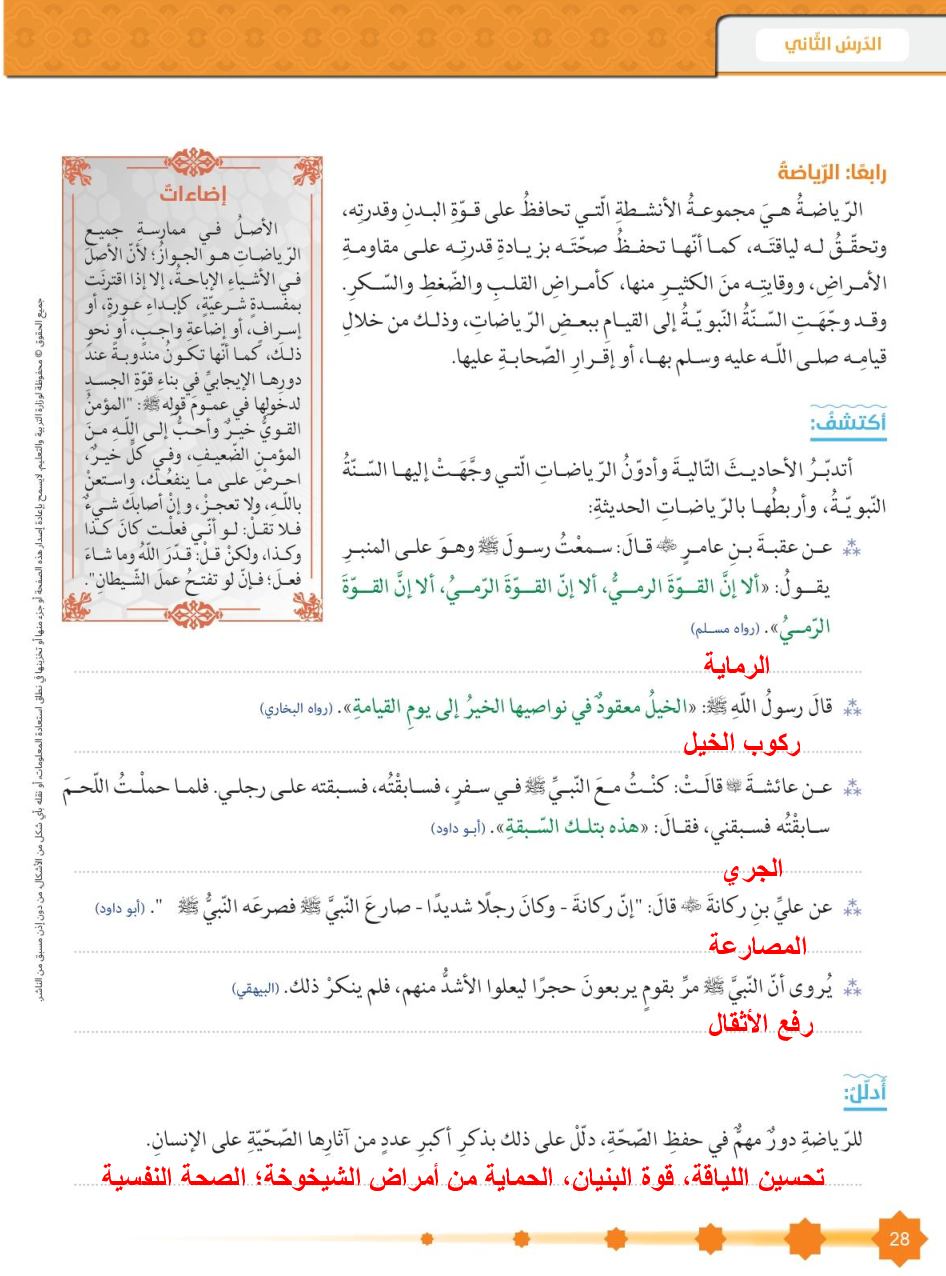 الدّرسُ الثّاني
رابعًا: الرّياضةُ
الرّياضةُ هيَ مجموعةُ الأنشطةِ الّتي تحافظُ على قوّةِ البدنِ وقدرتِه،
وتحقّقُ له لياقتَه، كما أنّها تحفظُ صحّتَه بزيادةِ قدرتِه على مقاومةِ
الأمراضِ، ووقايتِه منَ الكثيرِ منها، كأمراضِ القلبِ والضّغطِ والسّكرِ.
وقد وجّهَتِ السّنّةُ النّبويّةُ إلى القيامِ ببعضِ الرّياضاتِ، وذلك من خلالِ
قيامِه صلى اللّه عليه وسلم بها، أو إقرارِ الصّحابةِ عليها.
إضاءاتٌ
الأصلُ في ممارسةِ جميعِ
الرّياضاتِ هو الجوازُ؛ لأنّ الأصلَ
في الأشياءِ الإباحةُ، إلا إذا اقترنَت
بمفسدةٍ شرعيّةٍ، كإبداءِ عورةٍ، أو
إسرافٍ، أو إضاعةِ واجبٍ، أو نحوِ
ذلكَ، كما أنّها تكونُ مندوبةً عندَ
دورِها الإيجابيِّ في بناءِ قوّةِ الجسدِ
لدخولِها في عمومِ قوله ﷺ: "المؤمنُ
القويُّ خيرٌ وأحبُّ إلى اللّهِ منَ
المؤمنِ الضّعيفِ، وفي كلٍّ خيرٌ،
احرصْ على ما ينفعُكَ، واستعنْ
باللّهِ، ولا تعجزْ، وإنْ أصابكَ شيءٌ
فلا تقلْ: لو أنّي فعلْت كانَ كذا
وكذا، ولكنْ قلْ: قدّرَ اللّهُ وما شاءَ
فعلَ؛ فإنّ لو تفتحُ عملَ الشّيطانِ".
أكتشفُ:
أتدبّرُ الأحاديثَ التّاليةَ وأدوّنُ الرّياضاتِ الّتي وجَّهَتْ إليها السّنّةُ
النّبويّةُ، وأربطُها بالرّياضاتِ الحديثةِ:
عن عقبةَ بنِ عامرٍ رضي الله عنه قالَ: سمعْتُ رسولَ ﷺ وهوَ على المنبرِ
يقولُ: «ألا إنَّ القوّةَ الرميُّ، ألا إنّ القوّةَ الرّميُ، ألا إنَّ القوّةَ
الرّميُ». (رواه مسلم)
الرماية
قالَ رسولُ اللّهِ ﷺ: «الخيلُ معقودٌ في نواصيها الخيرُ إلى يومِ القيامةِ». (رواه البخاري)
ركوب الخيل
عن عائشةَ رضي الله عنها قالَتْ: كنْتُ معَ النّبيِّ ﷺ في سفرٍ، فسابقْتُه، فسبقته على رجلي. فلما حملْتُ اللّحمَ
سابقْتُه فسبقني، فقالَ: «هذه بتلك السّبقةِ». (أبو داود)
الجري
عن عليِّ بنِ ركانةَ رضي الله عنه قالَ: "إنّ ركانةَ - وكانَ رجلًا شديدًا - صارعَ النّبيَّ ﷺ فصرعَه النّبيُّ ﷺ ". (أبو داود)
المصارعة
يُروى أنّ النّبيَّ ﷺ مرَّ بقومٍ يربعونَ حجرًا ليعلوا الأشدُّ منهم، فلم ينكرْ ذلك. (البيهقي)
رفع الأثقال
أدلّلُ:
للرّياضةِ دورٌ مهمٌّ في حفظِ الصّحّةِ، دلّلْ على ذلك بذكرِ أكبرِ عددٍ من آثارِها الصّحّيّةِ على الإنسانِ.
تحسين اللياقة، قوة البنيان، الحماية من أمراض الشيخوخة؛ الصحة النفسية
28
جميع الحقوق © محفوظة لوزارة التربية والتعليم. لايسمح بإعادة إصدار هذه الصفحة أو جزء منها أو تخزينها في نطاق استعادة المعلومات، أو نقله بأي شكل من الأشكال، من دون إذن مسبق من الناشر.